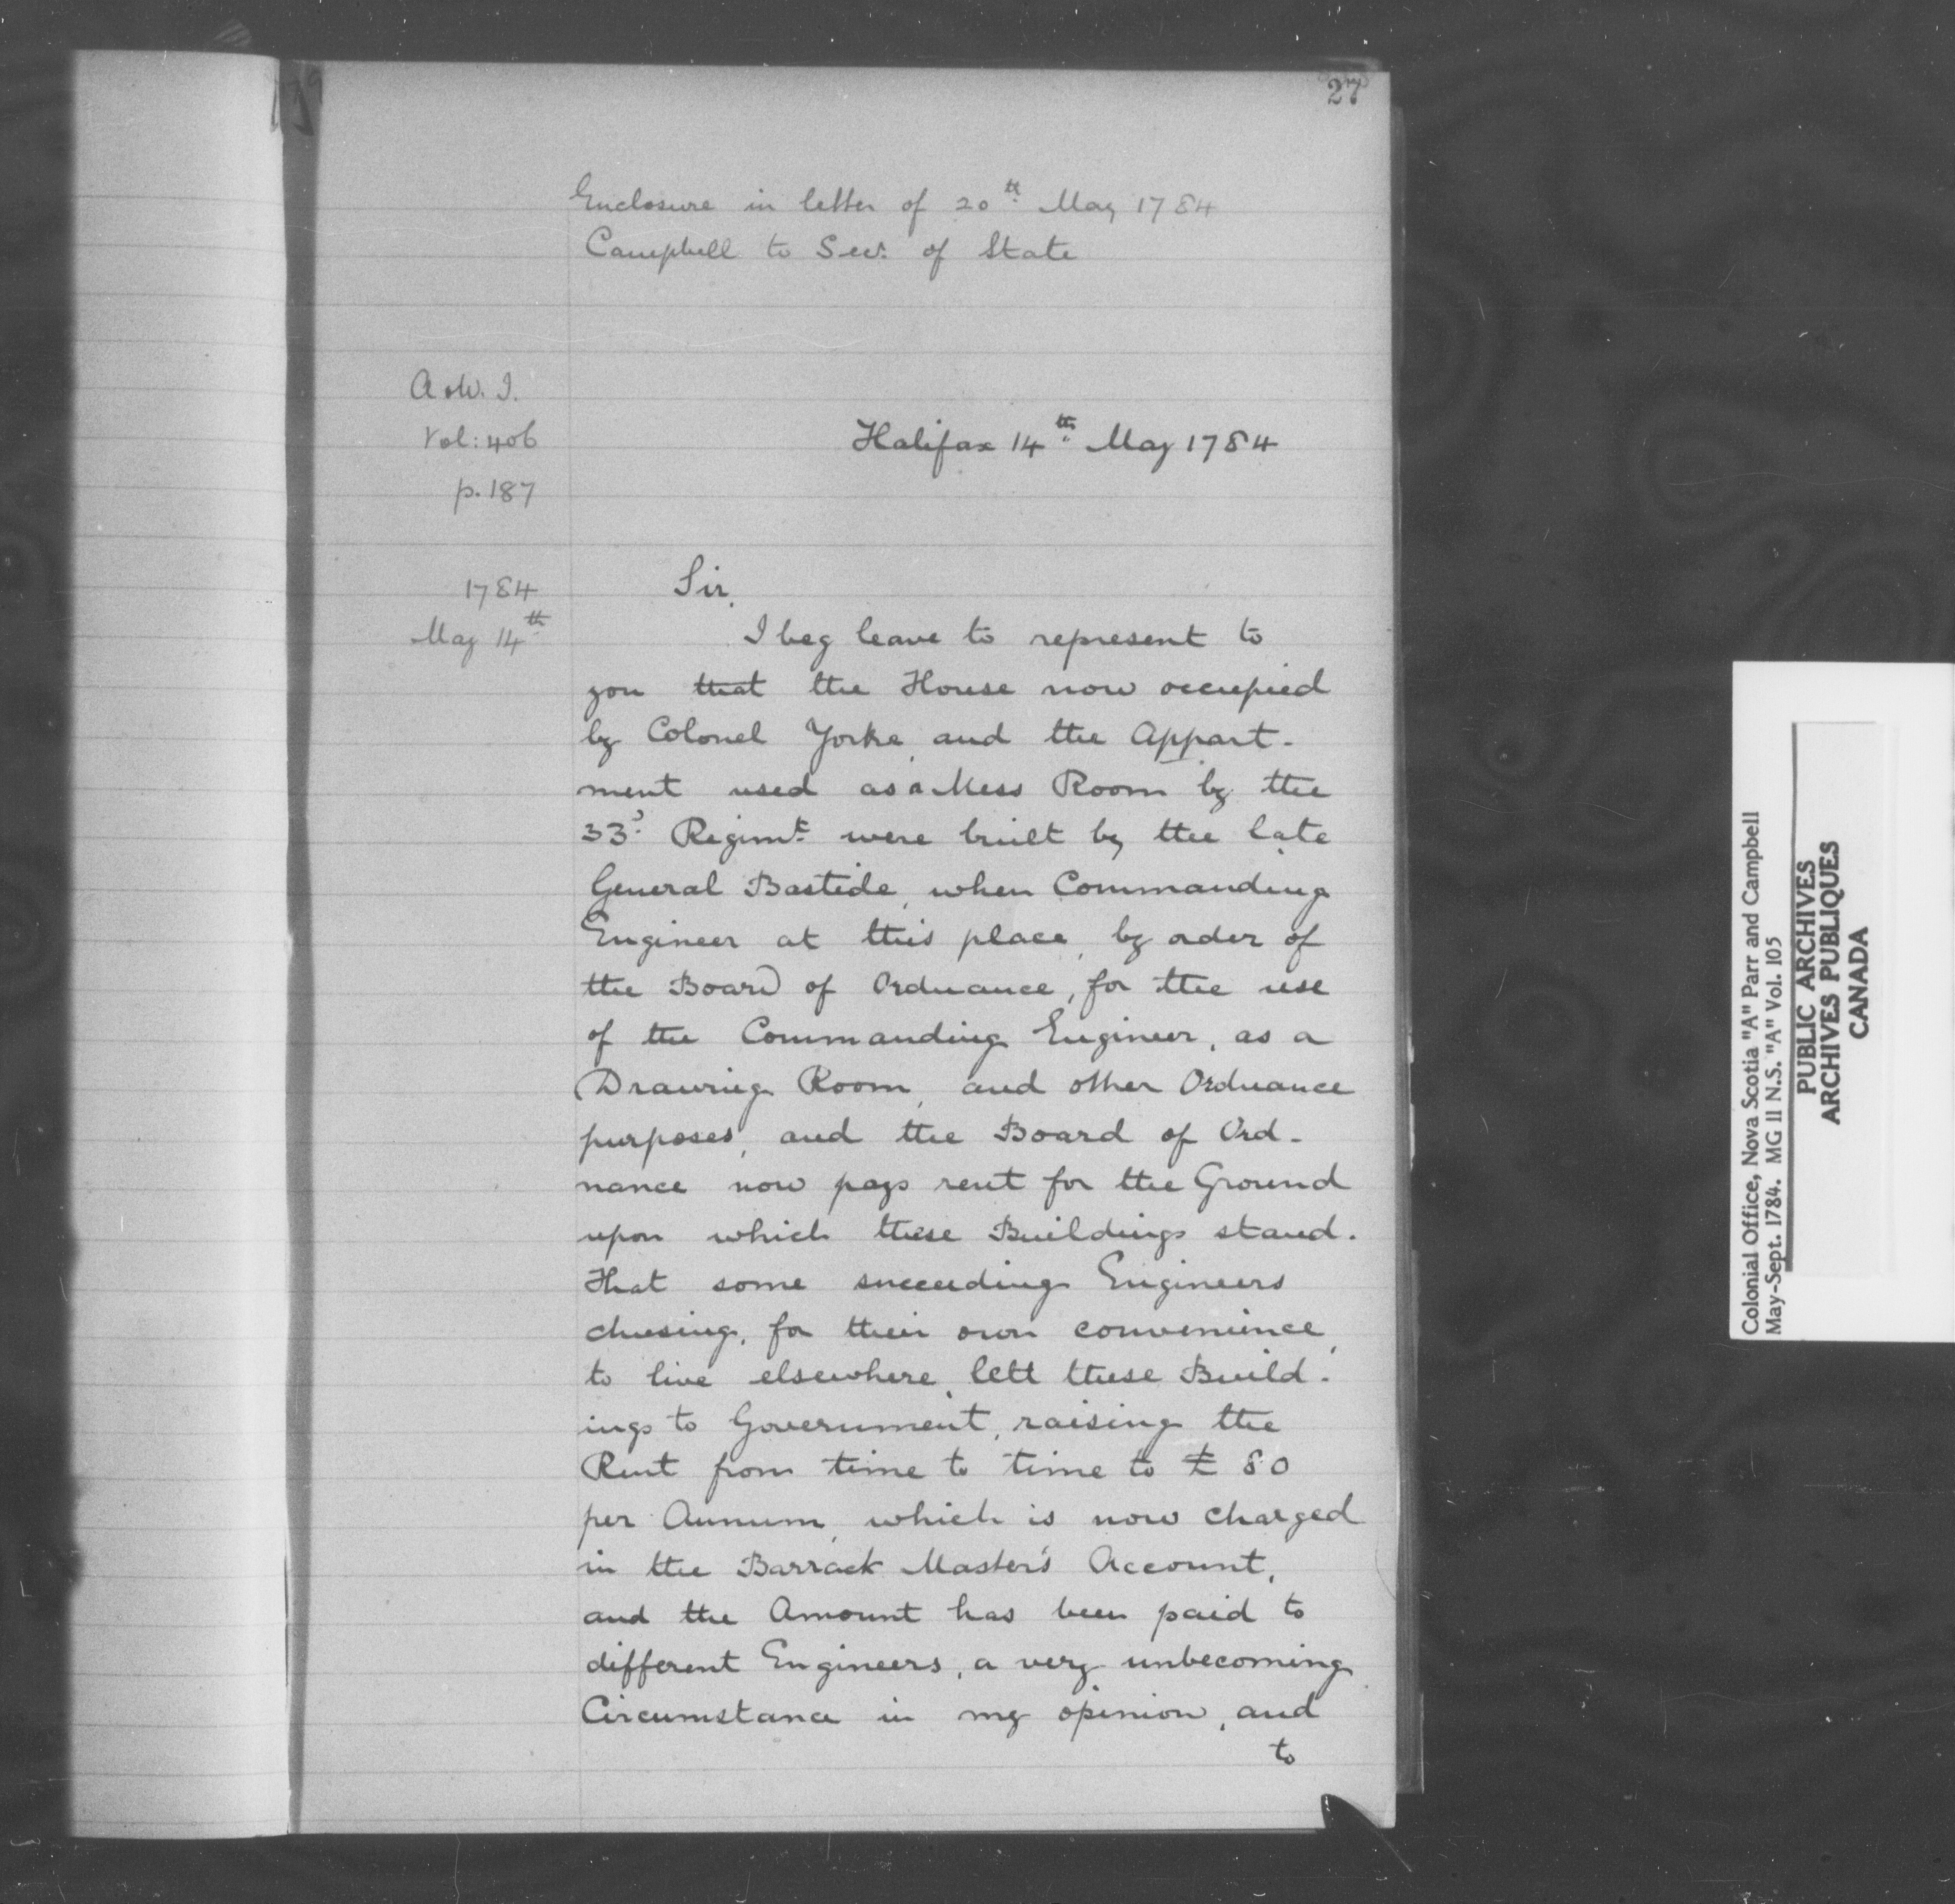 27
Enclosure in letter of 20th May 1784
Campbell to Secr. of State
A & W. I.
Vol: 406
p. 187
Halifax 14th May 1784
1784
May 14th
Sir,
I beg leave to represent to
you that the House now occupied
by Colonel Yorke, and the Appart-
ment used as a Mess Room by the
33d Regimt. were built by the late
General Bastide, when Commanding
Engineer at this place, by order of
the Board of Ordnance, for the use
of the Commanding Engineer, as a
Drawing Room, and other Ordnance
purposes, and the Board of Ord-
nance now pays rent for the Ground
upon which these Buildings stand.
That some succeeding Engineers
chusing, for their own convenience,
to live elsewhere, lett these Build-
ings to Government, raising the
Rent from time to time to £ 80
per Annum, which is now charged
in the Barrack Master's Account,
and the Amount has been paid to
different Engineers, a very unbecoming
Circumstance in my opinion, and
to
Colonial Office, Nova Scotia "A" Parr and Campbell
May-Sept. 1784. MG 11 N.S. "A" Vol. 105
PUBLIC ARCHIVES
ARCHIVES PUBLIQUES
CANADA